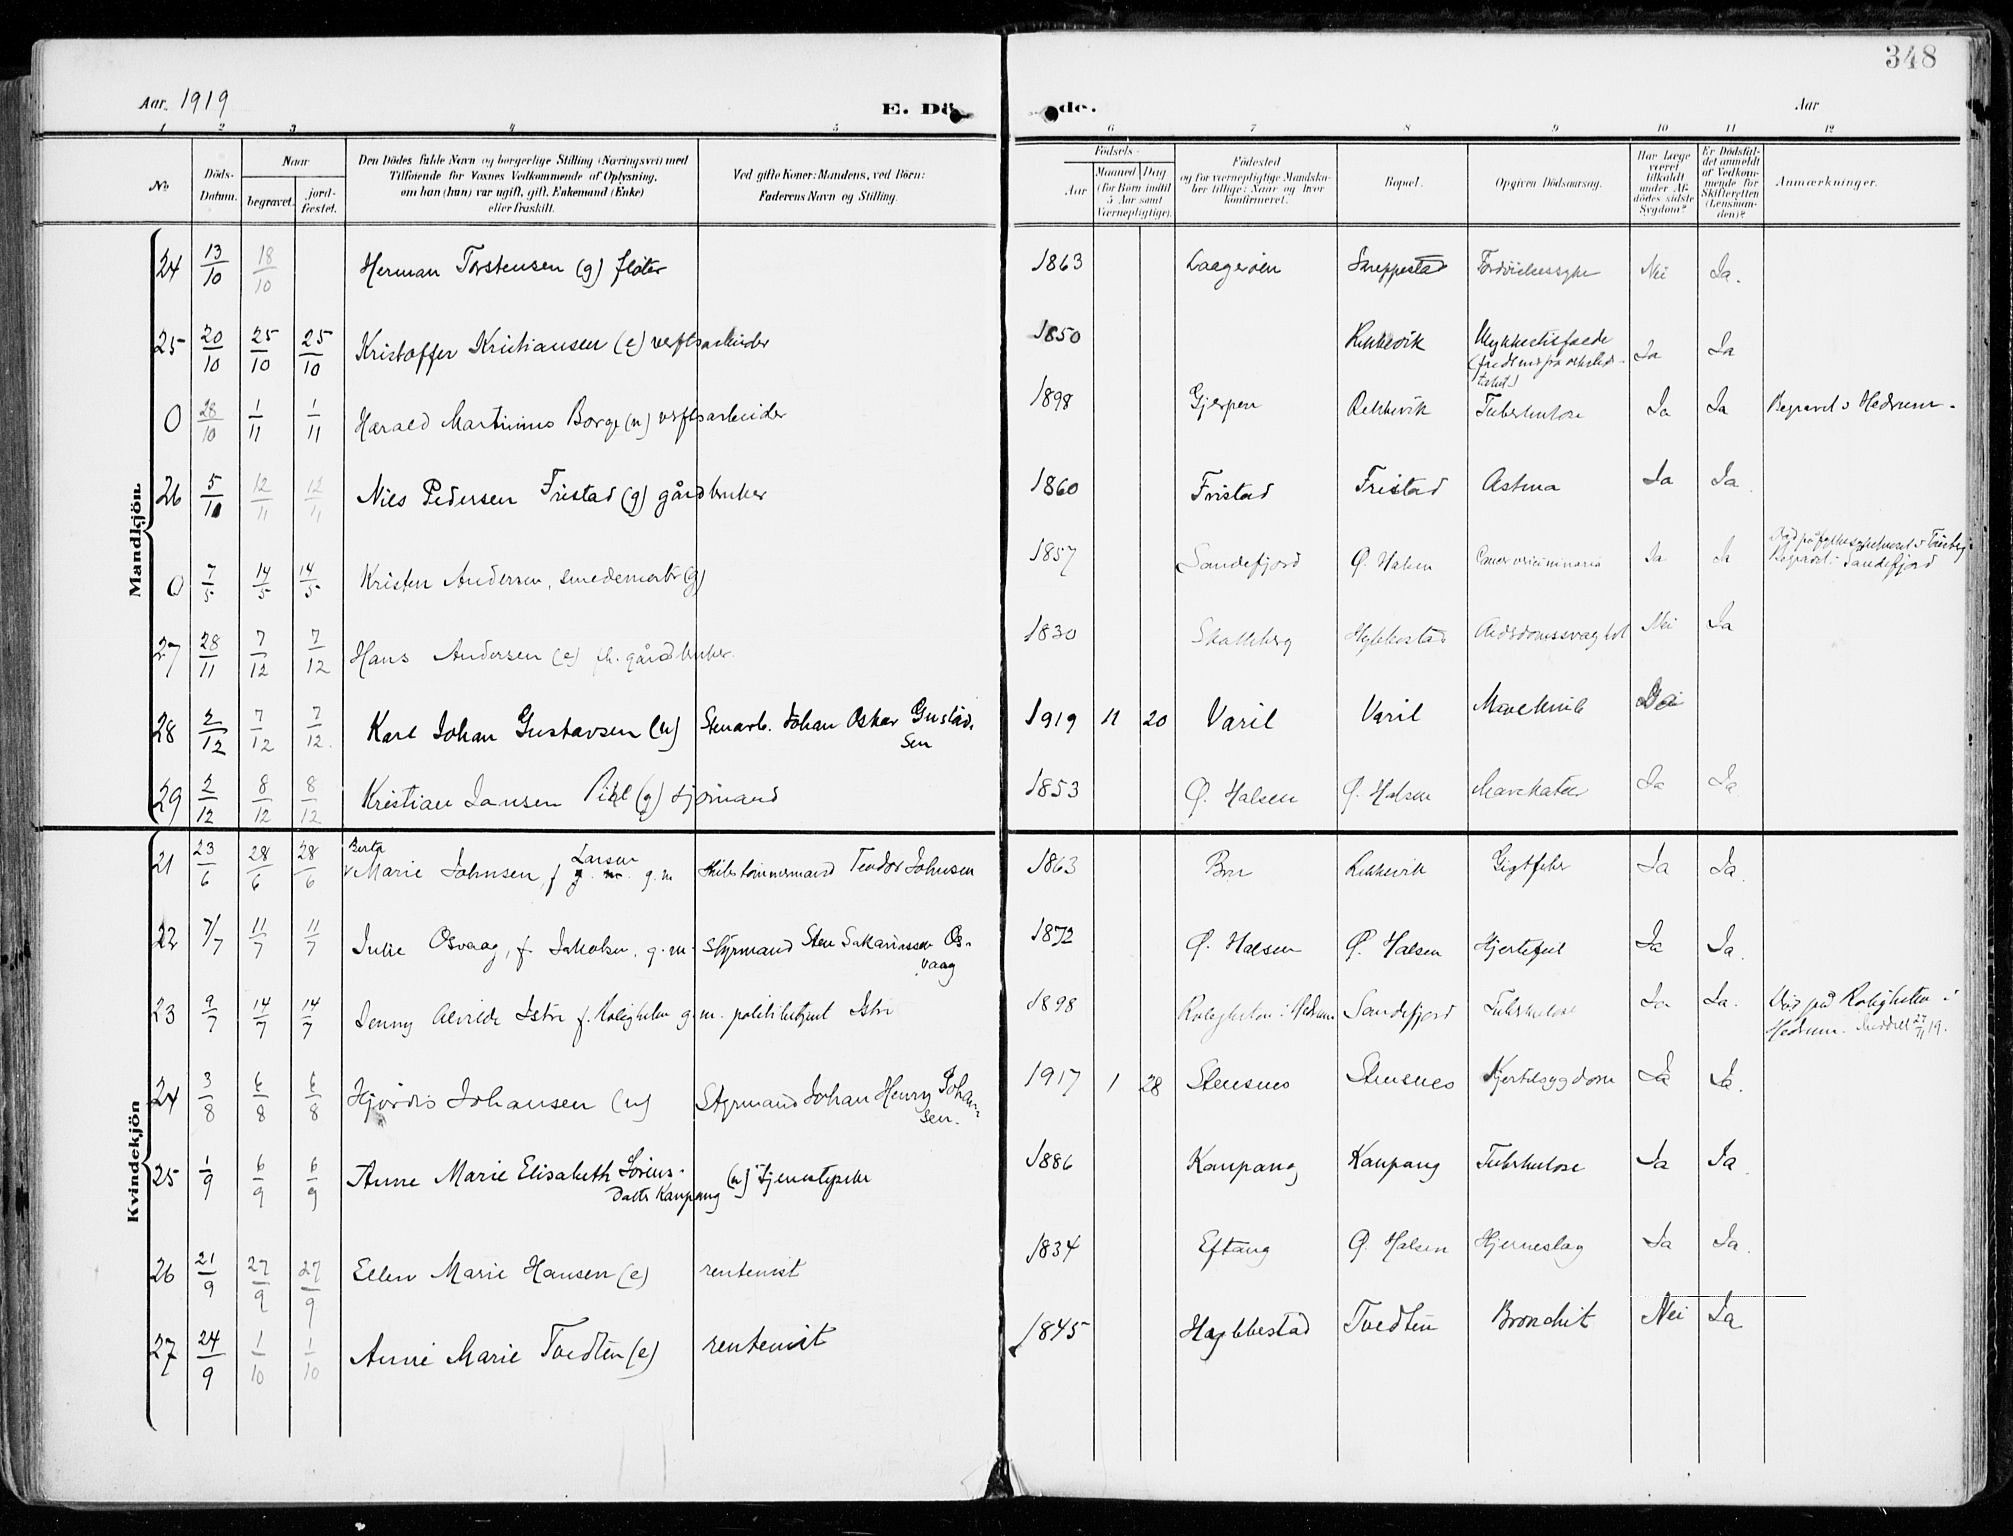 348
Aar. 1919 E. Dö de. Aar
1 2 3 4 5 6 7 8 9 10 11 12
No Döds-Datum. Naar begravet. jord-fæstet. Den Dödes fulde Navn og borgerlige Stilling (Næringsvei) med Tilföiende for Voxnes Vedkommende af Oplysning, om han (hun) var ugift, gift, Enkemand (Enke) eller fraskilt. Ved gifte Koner: Mandens, ved Börn: Faderens Navn og Stilling. Födsels- Aar Maaned Dag (for Börn indtil 5 Aar samt Værnepligtige). Födested og for værnepligtige Mandskaber tillige: Naar og hvor konfirmeret. Bopæl. Opgiven Dödsaarsag. Har Læge været tilkaldt under Afdödes sidste Sygdom? Er Dödsfaldet anmeldt af Vedkommende for Skifteretten (Lensmanden)? Anmærkninger.
Mandkjön.
24 13/10 18/10 Herman Torstensen (g) fløter 1863 Laagerøen Sneppestad Nei Ja.
25 20/10 25/10 25/10 Kristoffer Kristiansen (e) verftsarbeider 1850 Rekkevik Ulykkestilfælde Ja Ja
0 28/10 1/11 1/11 Harald Martinius Borge (u) verftsarbeider 1898 Gjerpen Rekkevik Tuberkulose Ja Ja Begravet i Hedrum.
26 5/11 12/11 12/11 Nils Pedersen Fristad (g) gårdbruker 1860 Fristad Fristad Astma Ja Ja.
0 7/5 14/5 14/5 Kristen Andersen, smedemester (g) 1857 Sandefjord Ø. Halsen Ja Ja Død på fylkessykehuset i Tønsberg
Begravet i Sandefjord
27 28/11 7/12 7/12 Hans Andersen (e) fh. gårdbruker. 1830 Skalleberg Hybbestad Alderdomssvaghet Nei Ja
28 2/12 7/12 7/12. Karl Johan Gustavsen (u) Stenarb. Johan Oskar Gustav-
sen 1919 11 20 Varil Varil Maveknib Nei
29 2/12 8/12 8/12 Kristian Jansen Pihl (g) sjømand 1853 Ø. Halsen Ø. Halsen Mavekatar Ja Ja.
Kvindekjön
21 23/6 28/6 28/6 Berta Marie Johnsen, f Larsen g. m Skibstømmermand Teodor Johnsen 1863 Rekkevik Gigtfeber Ja Ja.
22 7/7 11/7 11/7 Julie Osvaag, f. Jakobsen. g. m. styrmand Sten Sakariassen Os-
vaag 1872 Ø. Halsen Ø. Halsen Hjertefeil Ja Ja.
23 9/7 14/7 14/7 Jenny Alvilde Istre f. Roligheten g. m. politibetjent Istre 1898 Roligheten i Hedrum Sandefjord Tuberkulose Ja Ja. Død på Roligheten i
Hedrum. Meddelt 27/11 19.
24 3/8 6/8 6/8 Hjørdis Johansen (u) Styrmand Johan Henry Johan-
sen. 1917 1 28 Stensnes Stensnes Hjertesygdom Ja Ja.
25 1/9 6/9 6/9 Anne Marie Elisabeth Sørens-
datter Kaupang (u) tjenestepike 1886 Kaupang Kaupang Tuberkulose Ja Ja.
26 21/9 27/9 27/9 Ellen Marie Hansen (e) rentenist 1834 Eftang Ø. Halsen Hjerneslag Ja Ja.
27 24/9 1/10 1/10 Anne Marie Tvedten (e) rentenist 1845 Tvedten Bronchit Nei Ja